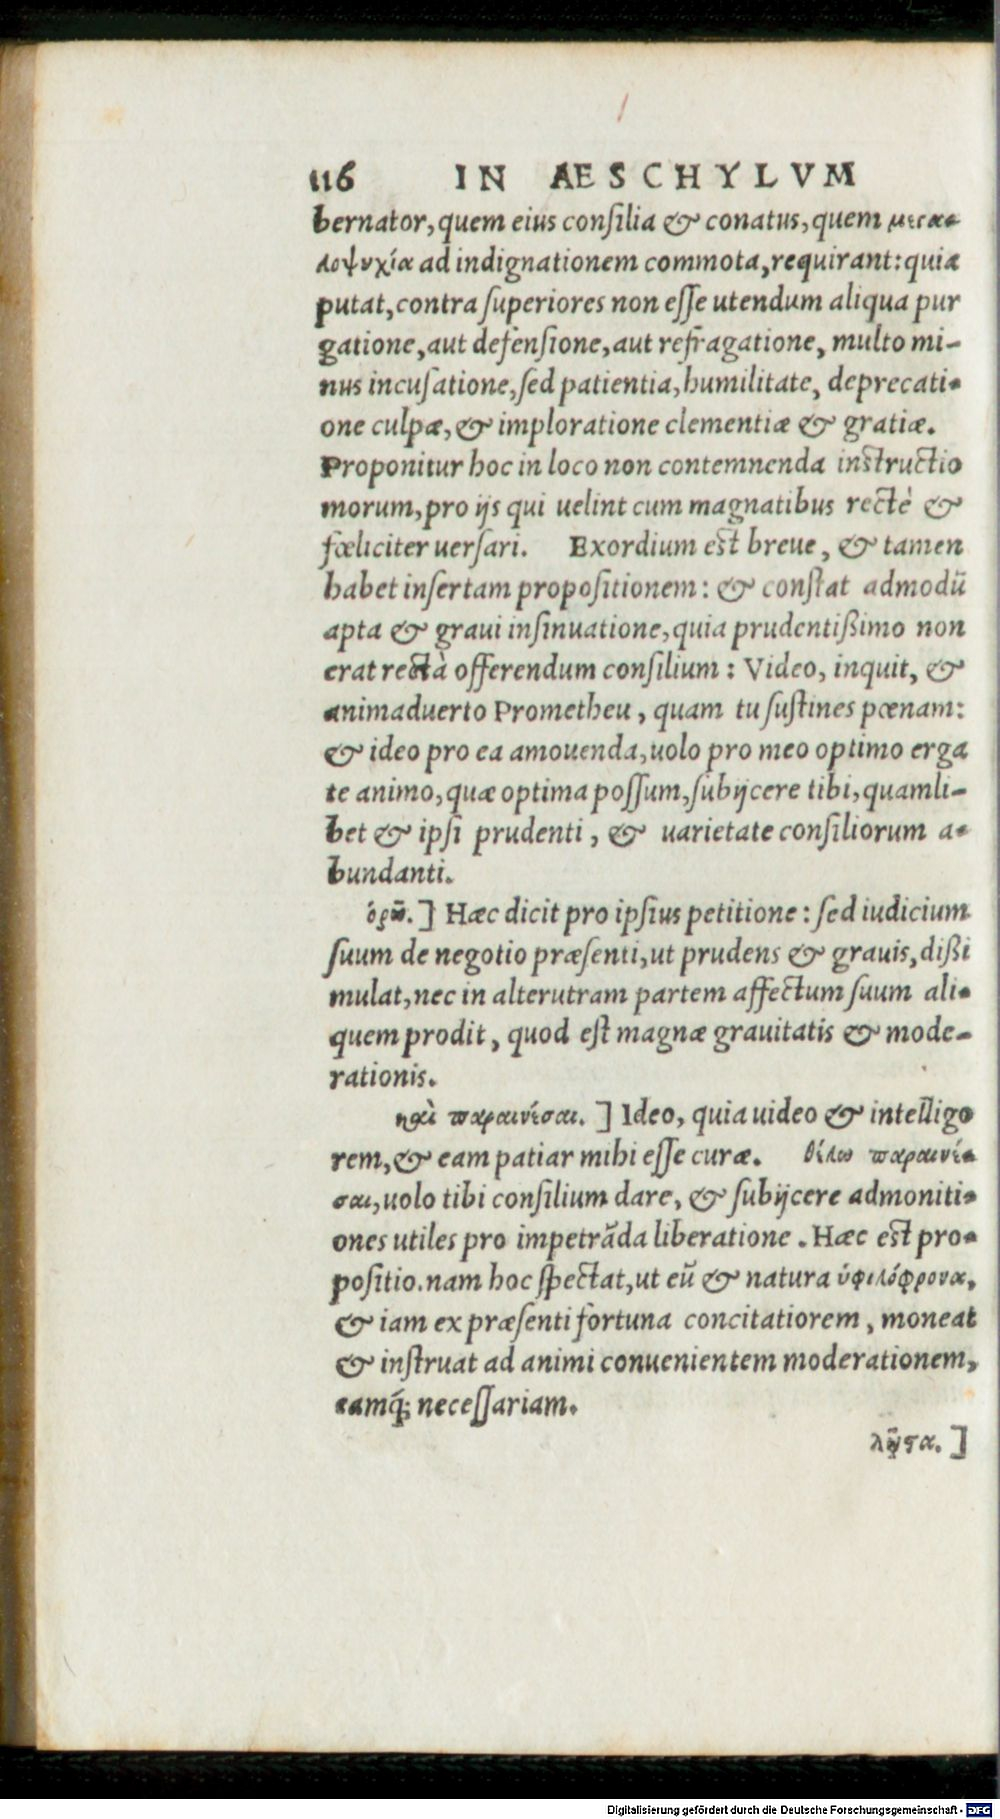 116 IN AESCHYLVM
bernator, quem eius consilia & conatus, quem μεγα-
λοψυχία ad indignationem commota, requirant: quia
putat, contra superiores non esse utendum aliqua pur
gatione, aut defensione, aut refragatione, multo mi-
nus incusatione, sed patientia, humilitate, deprecati-
one culpæ, & imploratione clementiæ & gratiæ.
Proponitur hoc in loco non contemnenda instructio
morum, pro ijs qui uelint cum magnatibus rectè &
fœliciter uersari. Exordium est breue, & tamen
habet insertam propositionem: & constat admodũ
apta & graui insinuatione, quia prudentißimo non
erat rectà offerendum consilium: Video, inquit, &
animaduerto Prometheu, quam tu sustines pœnam:
& ideo pro ea amouenda, uolo pro meo optimo erga
te animo, quæ optima possum, subijcere tibi, quamli-
bet & ipsi prudenti, & uarietate consiliorum a-
bundanti.
ὁρῶ.] Hæc dicit pro ipsius petitione: sed iudicium
suum de negotio præsenti, ut prudens & grauis, dißi
mulat, nec in alterutram partem affectum suum ali-
quem prodit, quod est magnæ grauitatis & mode-
rationis.
καὶ παραινέσαι.] Ideo, quia uideo & intelligo
rem, & eam patiar mihi esse curæ. θέλω παραινέ-
σαι, uolo tibi consilium dare, & subijcere admoniti-
ones utiles pro impetrãda liberatione. Hæc est pro-
positio. nam hoc spectat, ut eũ & natura ὑψιλόφρονα,
& iam ex præsenti fortuna concitatiorem, moneat
& instruat ad animi conuenientem moderationem,
eamq́; necessariam.
λῷστα.]
Digitalisierung gefördert durch die Deutsche Forschungsgemeinschaft - DFG